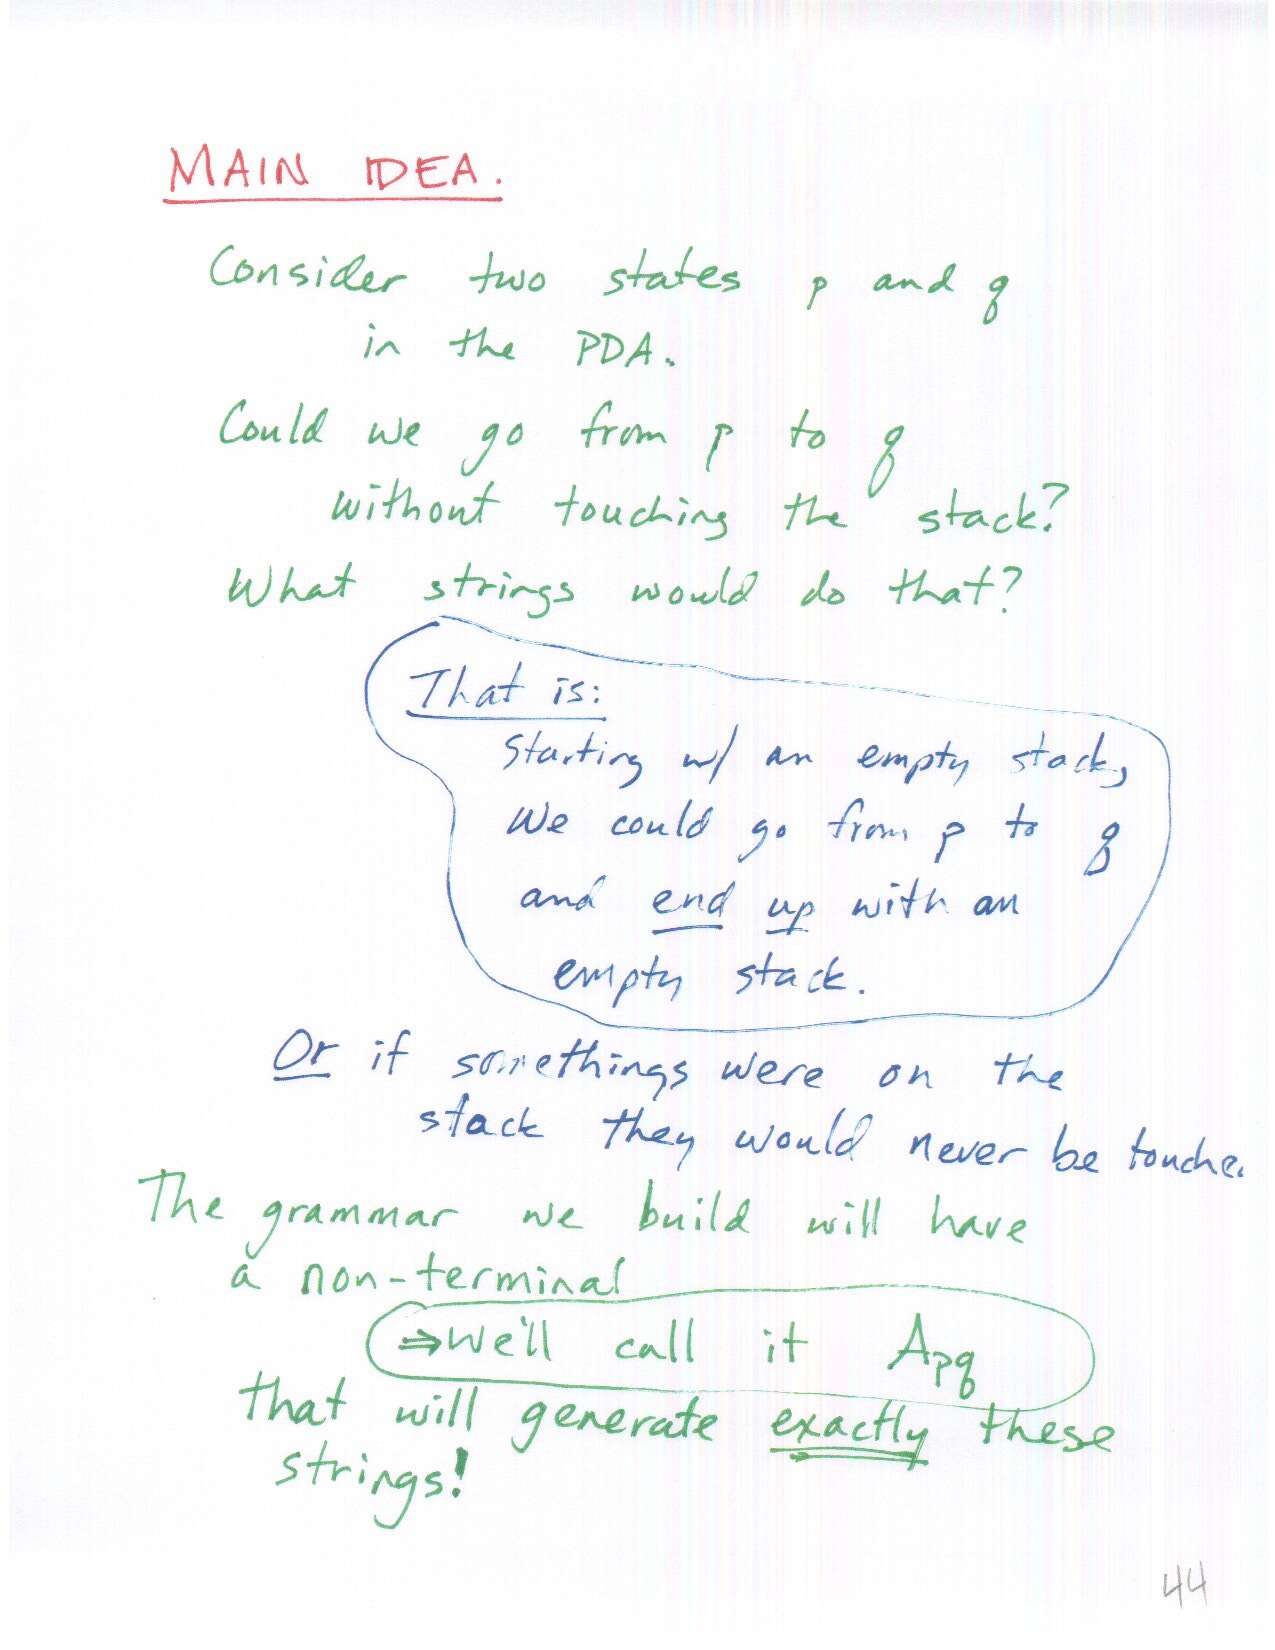 MAIN IDEA.
Consider two states p and q
in the PDA.
Could we go from p to q
without touching the stack?
What strings would do that?
That is:
Starting w/ an empty stack,
We could go from p to q
and end up with an
empty stack.
Or if somethings were on the
stack they would never be touche.
The grammar we build will have
a non-terminal
⇒ We'll call it Apq
that will generate exactly these
strings!
44